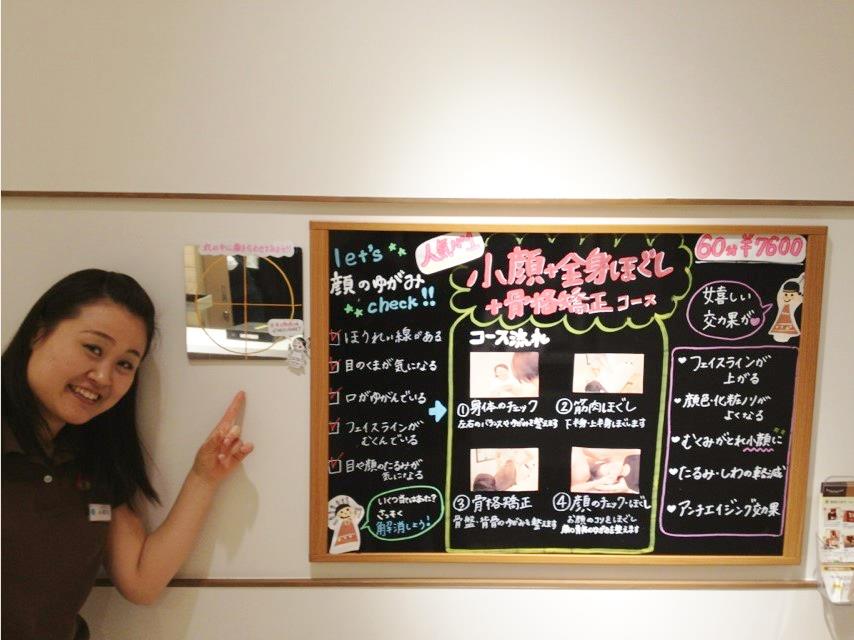 let's
顔のゆがみ
check!!
ほうれい線がある
目のくまが気になる
口がゆがんでいる
フェイスラインが
むくんでいる
目や顔のたるみが
気になる
いくつ当てはまった?
さっそく
解消しましょう!
人気No.1
小顔+全身ほぐし
+骨格矯正コース
コース流れ
①身体のチェック
左右のバランスやゆがみを整えます
②筋肉ほぐし
下半身・上半身ほぐします
③骨格矯正
骨盤・背骨のゆがみを整えます
④顔のチェック・ほぐし
お顔のコリをほぐし
60分¥7600
嬉しい
効果が
フェイスラインが
上がる
顔色・化粧ノリが
よくなる
むくみがとれ小顔に
たるみ・しわの軽減
アンチエイジング効果